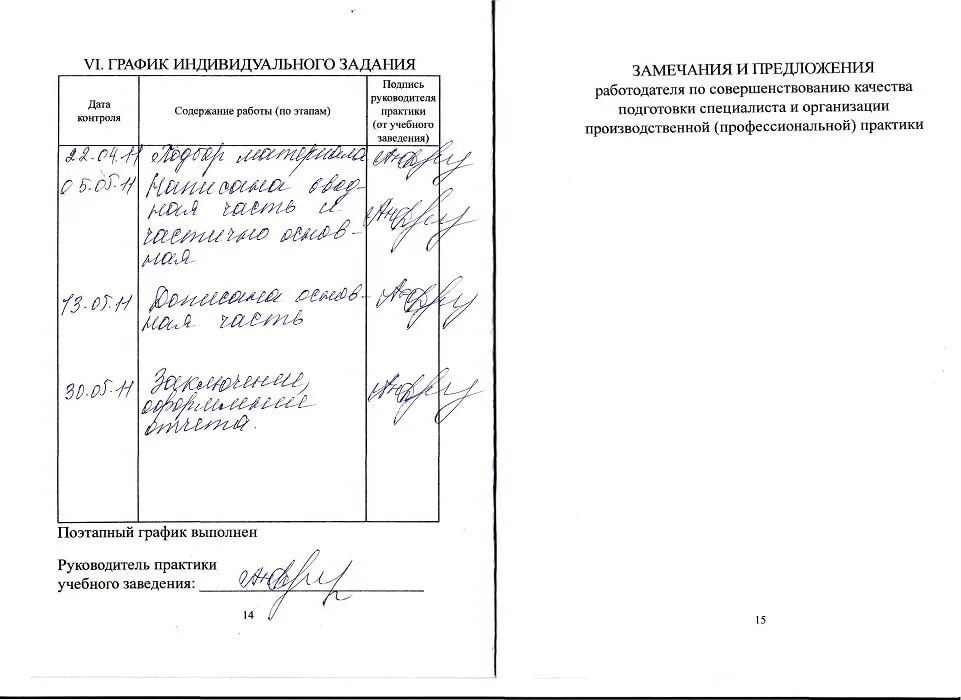 VI. ГРАФИК ИНДИВИДУАЛЬНОГО ЗАДАНИЯ
Дата
контроля
Содержание работы (по этапам)
Подпись
руководителя
практики
(от учебного
заведения)
22.04.11 Подбор материала
05.05.11 Написана ввод-
ная часть и
частично основ-
ная
13.05.11 Дописана основ-
ная часть
30.05.11 Заключение,
оформление
отчета.
Поэтапный график выполнен
Руководитель практики
учебного заведения:
14
ЗАМЕЧАНИЯ И ПРЕДЛОЖЕНИЯ
работодателя по совершенствованию качества
подготовки специалиста и организации
производственной (профессиональной) практики
15